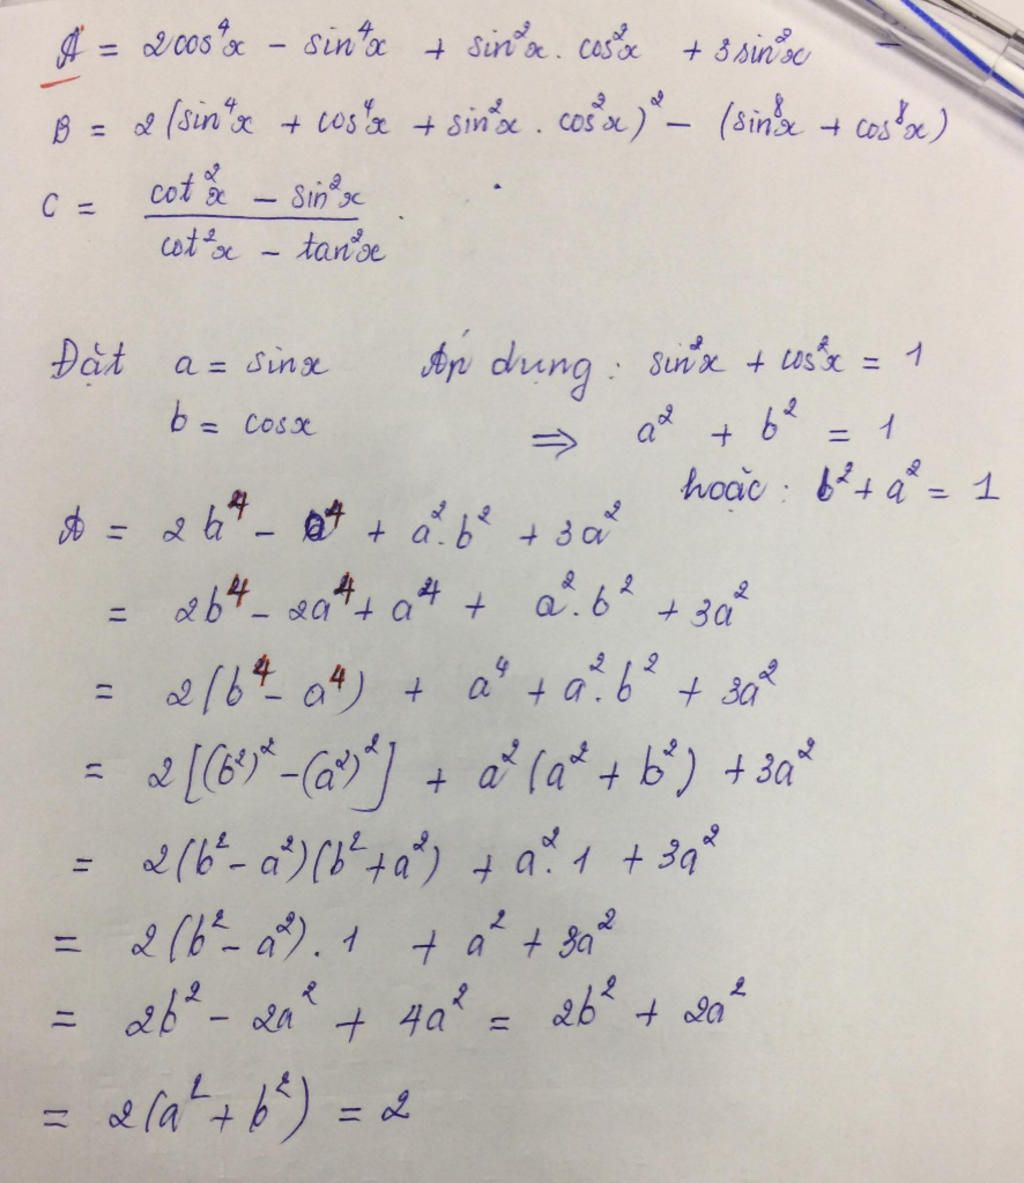 A = 2cos⁴x - sin⁴x + sin²x . cos²x + 3sin²x
B = 2(sin⁴x + cos⁴x + sin²x . cos²x)² - (sin⁸x + cos⁸x)
C = (cot²x - sin²x)/(cot²x - tan²x) .
Đặt a = sinx Áp dụng : sin²x + cos²x = 1
b = cosx ⇒ a² + b² = 1
hoặc : b² + a² = 1
A = 2b⁴ - a⁴ + a².b² + 3a²
= 2b⁴ - 2a⁴ + a⁴ + a².b² + 3a²
= 2(b⁴ - a⁴) + a⁴ + a².b² + 3a²
= 2[(b²)² - (a²)²] + a²(a² + b²) + 3a²
= 2(b² - a²)(b² + a²) + a².1 + 3a²
= 2(b² - a²).1 + a² + 3a²
= 2b² - 2a² + 4a² = 2b² + 2a²
= 2(a² + b²) = 2